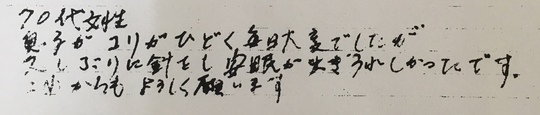 70代女性
コリがひどく毎日大変でしたが
久しぶりに針をし安眠が出きうれしかったです。
これからもよろしく願います